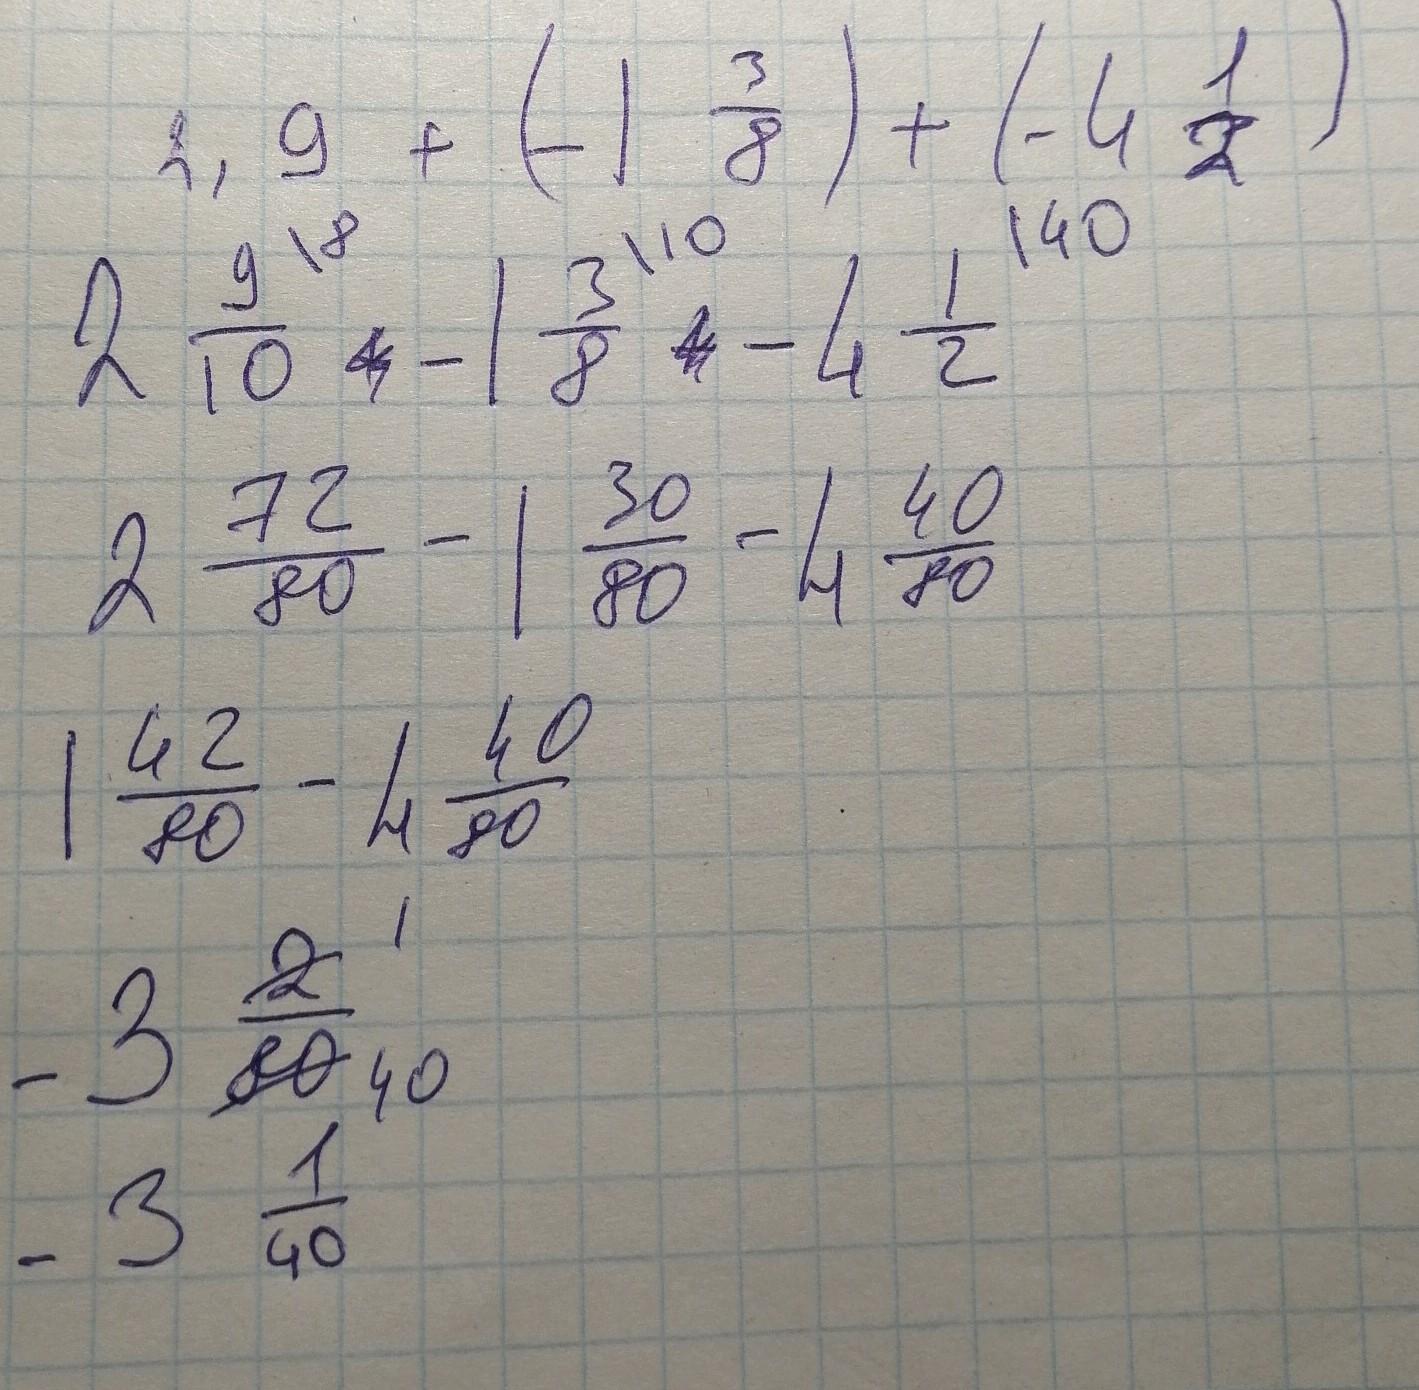 2,9 + (-1 3/8) + (-4 1/2)
2 9/10 \8 - 1 3/8 \10 - 4 1/2 \40
2 72/80 - 1 30/80 - 4 40/80
1 42/80 - 4 40/80
- 3 2/80 1 40
- 3 1/40